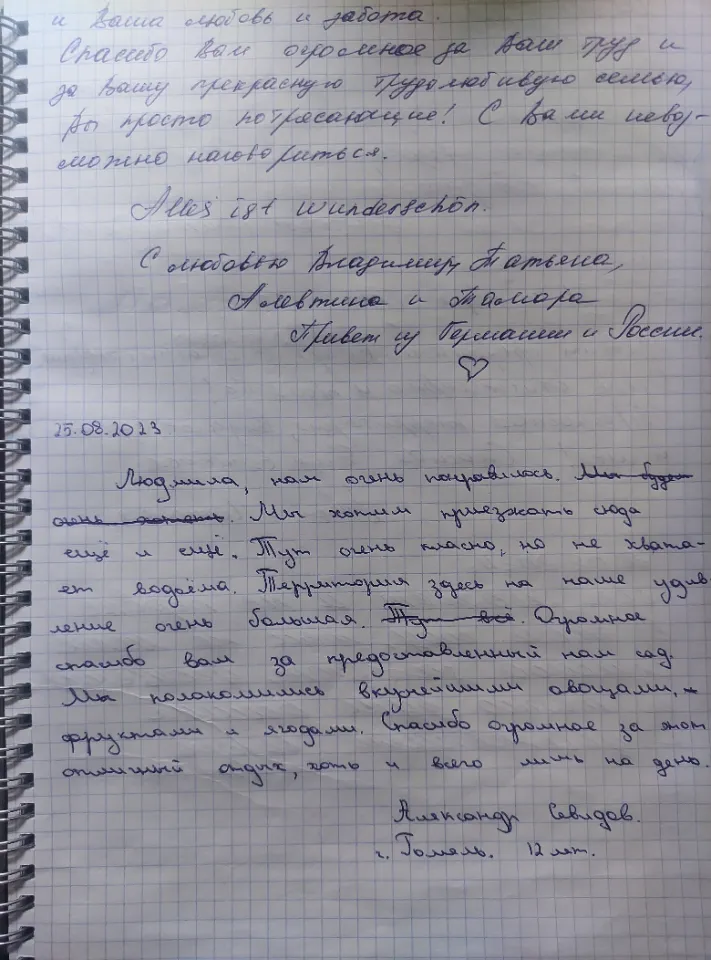 и Ваша любовь и забота.
Спасибо Вам огромное за Ваш труд и
за Вашу прекрасную трудолюбивую семью,
Вы просто потрясающие! С Вами невоз-
можно наговориться.
Alles ist wunderschön.
С любовью Владимир, Татьяна,
Алевтина и Тамара
Привет из Германии и России.
25.08.2023
Людмила, нам очень понравилось. Мы будем
очень хотеть. Мы хотим приезжать сюда
ещё и ещё. Тут очень класно, но не хвата-
ет водоёма. Территория здесь на наше удив
ление очень большая. Тут всё. Огромное
спасибо вам за предоставленный нам сад.
Мы полакомились вкуснейшими овощами,
фруктами и ягодами. Спасибо огромное за этот
отличный отдых, хоть и всего лишь на день.
Александр
г. Гомель. 12 лет.